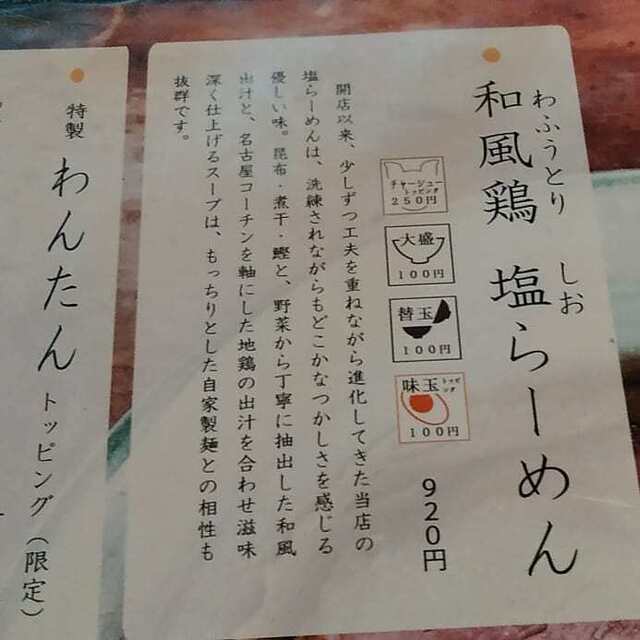 和風鶏 塩らーめん
わふうとり しお
チャーシュー
トッピング
250円
大盛
100円
替玉
100円
味玉
トッピング
100円
920円
開店以来、少しずつ工夫を重ねながら進化してきた当店の
塩らーめんは、洗練されながらもどこかなつかしさを感じる
優しい味。昆布・煮干・鰹と、野菜から丁寧に抽出した和風
出汁と、名古屋コーチンを軸にした地鶏の出汁を合わせ滋味
深く仕上げるスープは、もっちりとした自家製麺との相性も
抜群です。
特製 わんたん トッピング(限定)